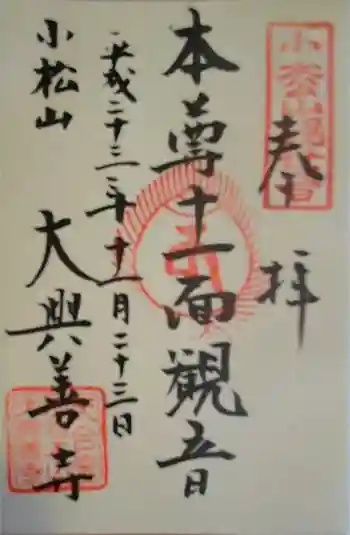 奉拝
本尊十一面観音
平成二十三年十一月二十三日
小松山
大興善寺